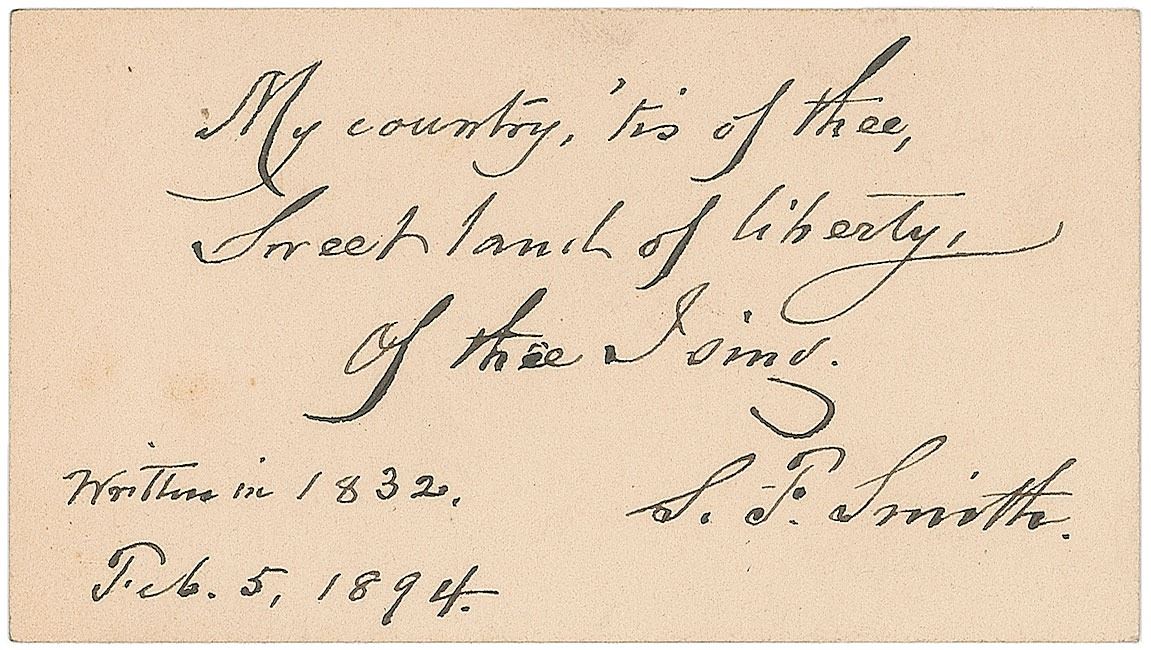 My country, 'tis of thee,
Sweet land of liberty,
Of thee I sing.
Written in 1832.
S. F. Smith.
Feb. 5, 1894.